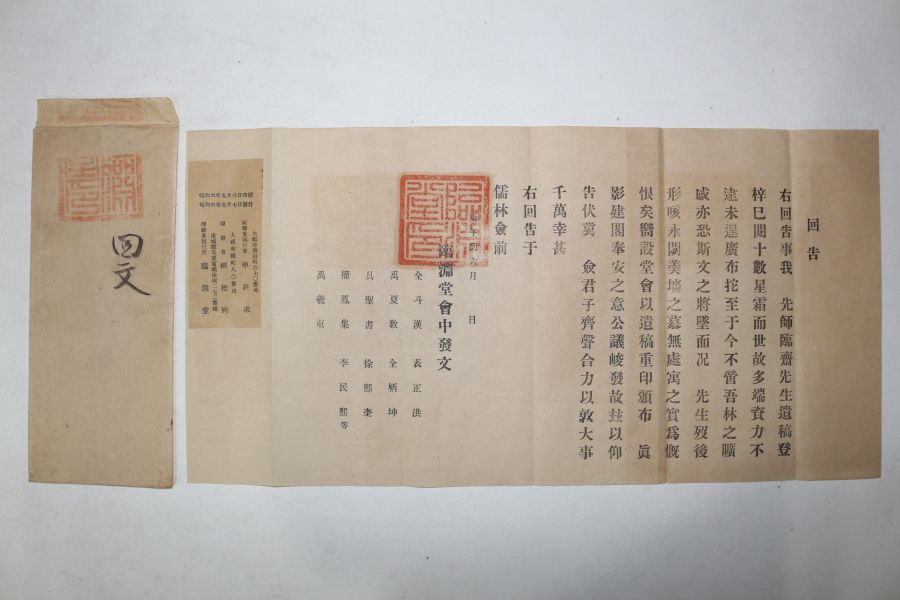 回文
回告
右回告事我 先師臨齋先生遺稿登
梓已閱十數星霜而世故多端資力不
逮未遑廣布拕至于今不啻吾林之曠
感亦恐斯文之將墜而况 先生歿後
形咳永閟羹墻之慕無處寓之實爲慨
恨矣嚮設堂會以遺稿重印頒布 眞
影建閣奉安之意公議峻發故玆以仰
告伏冀 僉君子齊聲合力以敦大事
千萬幸甚
右回告于
儒林僉前
月 日
臨淵堂會中發文
全斗漢 表正洪
禹夏敎 全炳坤
聖書 徐熙奎
權鳳集 李民熙等
禹義東
昭和六年五月三日印刷
昭和六年五月七日發行
臨淵堂